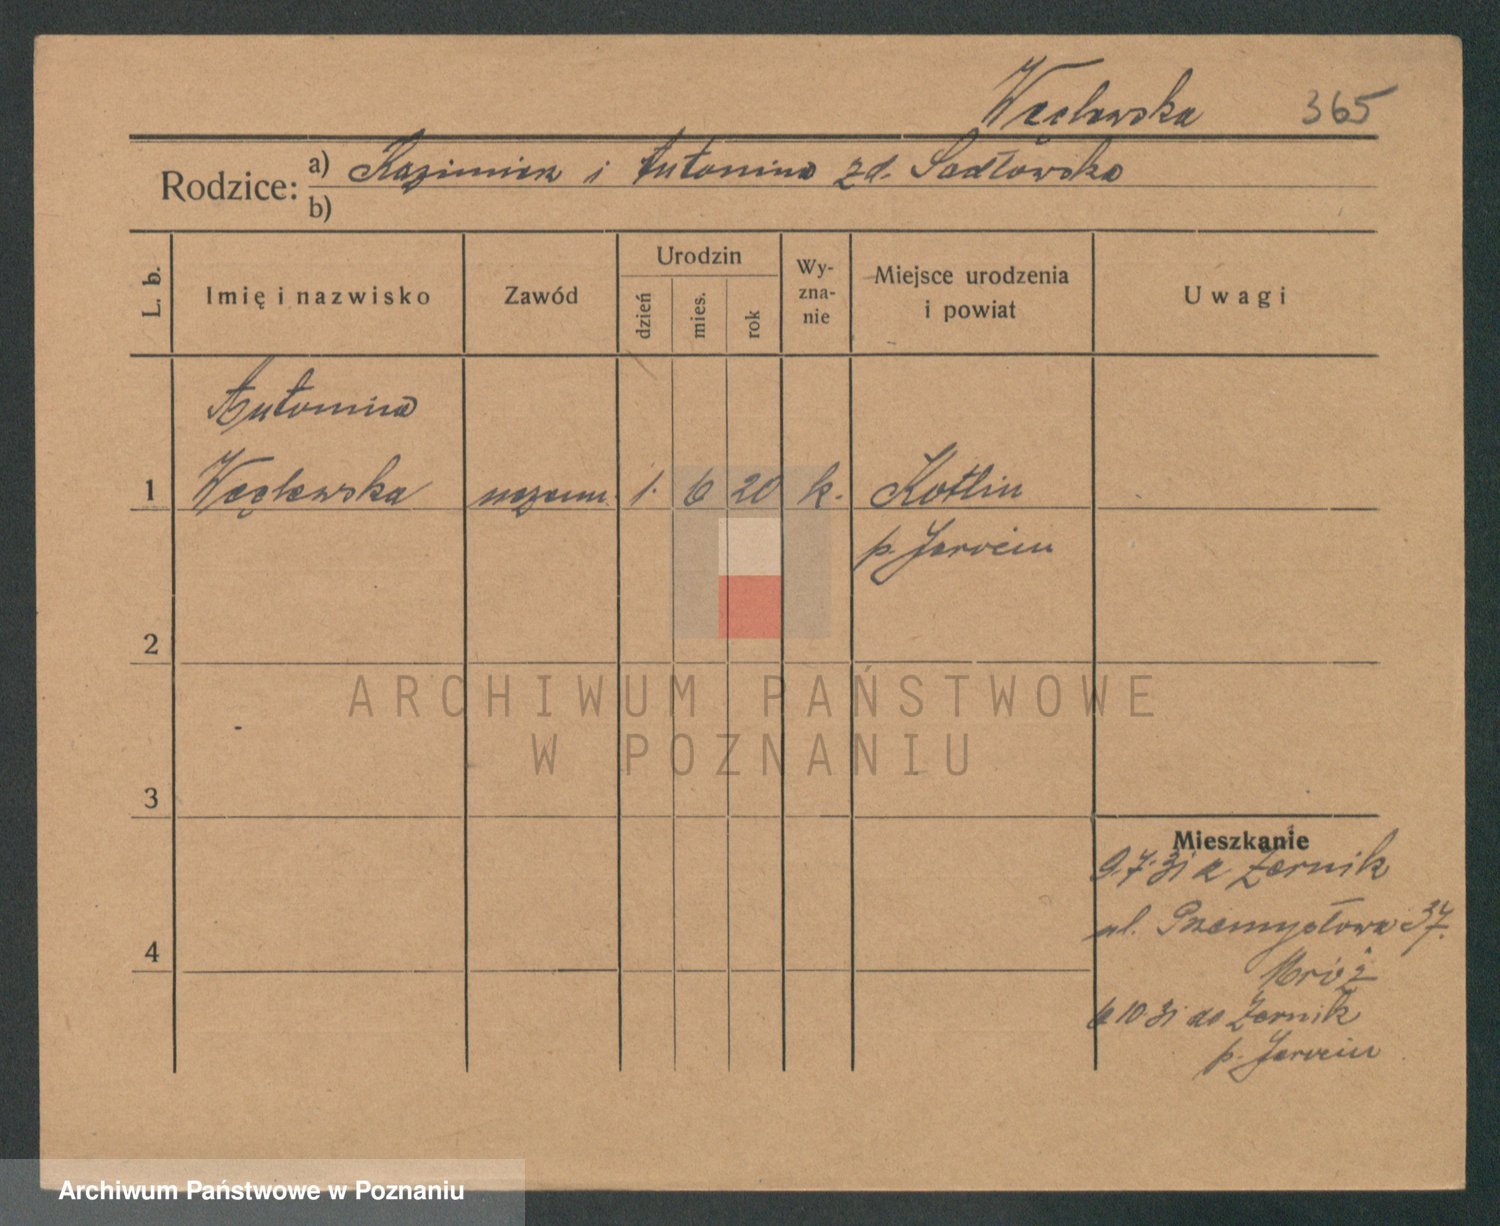 Węclewska 365
Rodzice: a) Kazimierz i Antonina zd. Sadłowska
b)
L. b. Imię i nazwisko Zawód Urodzin dzień mies. rok Wy-zna-nie Miejsce urodzenia i powiat Uwagi
Antonina
1 Węclewska uczenn. 1. 6 20 k. Kotlin
p. Jarocin
2
ARCHIWUM PAŃSTWOWE
W POZNANIU
3
Mieszkanie
9.7.31 z Żernik
4 ul. Przemysłowa 37.
Mróz
6 10 31 do Żernik
p. Jarocin
Archiwum Państwowe w Poznaniu